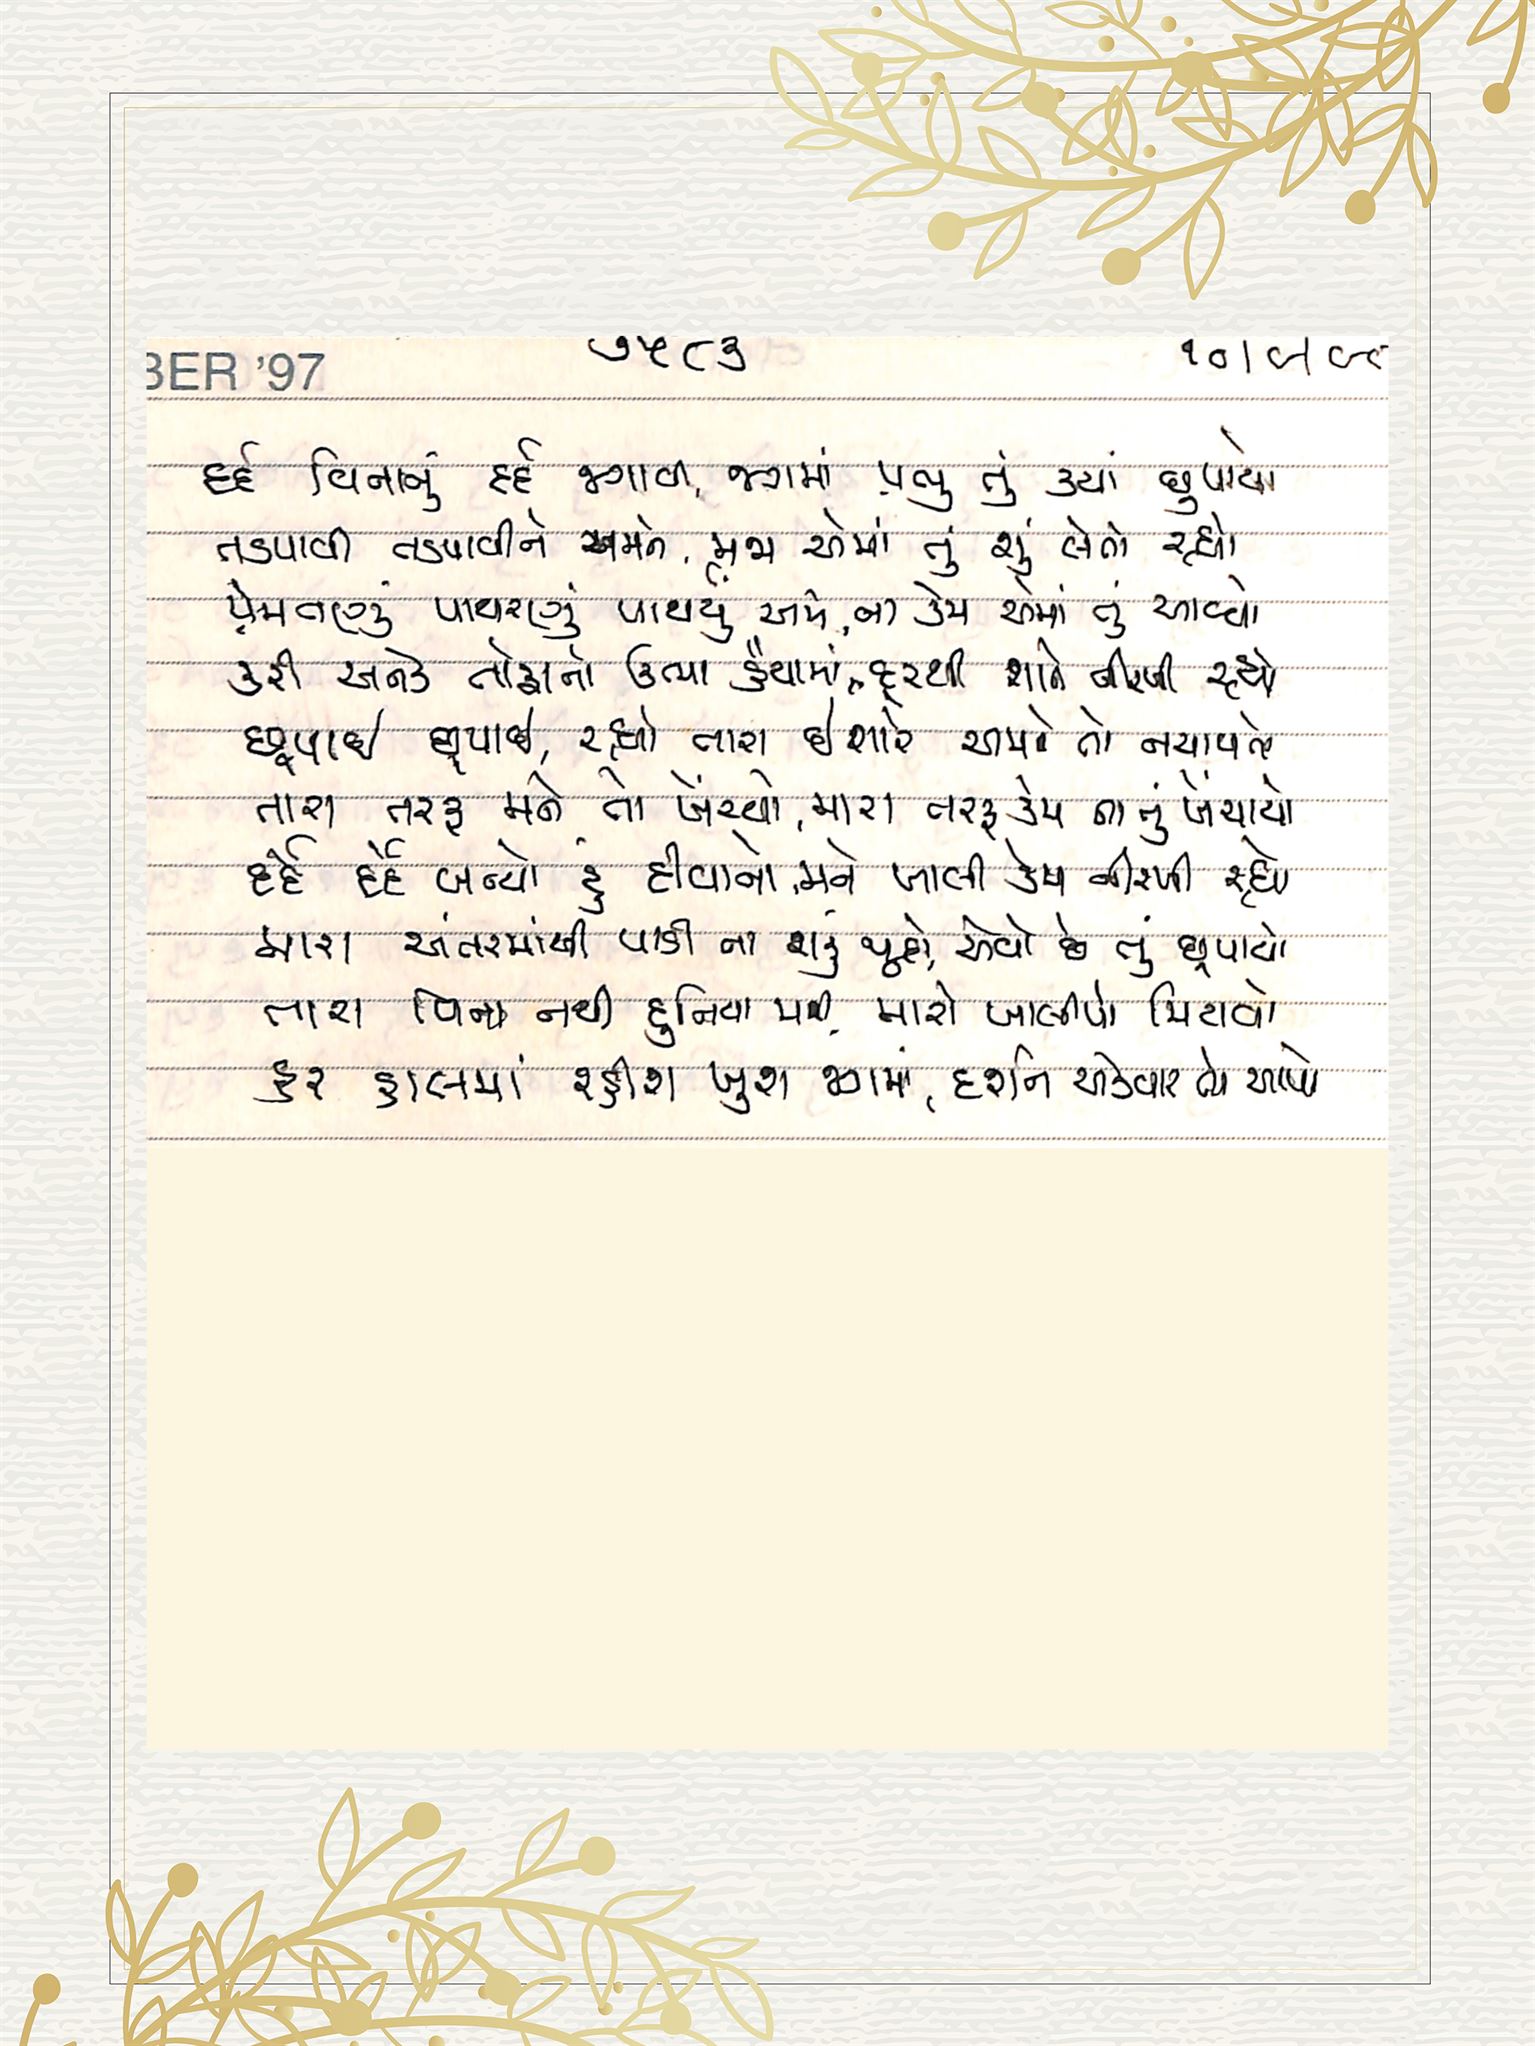 BER '97
૭૫૮૩
દર્દ વિનાનું દર્દ જગાવી, જગમાં પ્રભુ તું ક્યાં છુપાયો
તડપાવી તડપાવીને અમને, મજા એમાં તું શું લેતો રહ્યો
પ્રેમતણું પાથરણું પાથર્યું અમે, ના કેમ એમાં તું આવ્યો
કરી અનેક તોફાનો ઉભા હૈયામાં, દૂરથી શાને નીરખી રહ્યો
છુપાઈ છુપાઈ, રહ્યો તારા ઈશારે અમને તો નચાવતો
તારા તરફ મને તો ખેંચ્યો, મારા તરફ કેમ ના તું ખેંચાયો
દર્દે દર્દે બન્યો હું દીવાનો, મને ખાલી કેમ નીરખી રહ્યો
મારા અંતરમાંથી પાડી ના શકું છૂટો, એવો છે તું છુપાયો
તારા વિના નથી દુનિયા મારી, મારો ખાલીપો મિટાવો
હર હાલમાં રહીશ ખુશ જગમાં, દર્શન એકવાર તો આપો